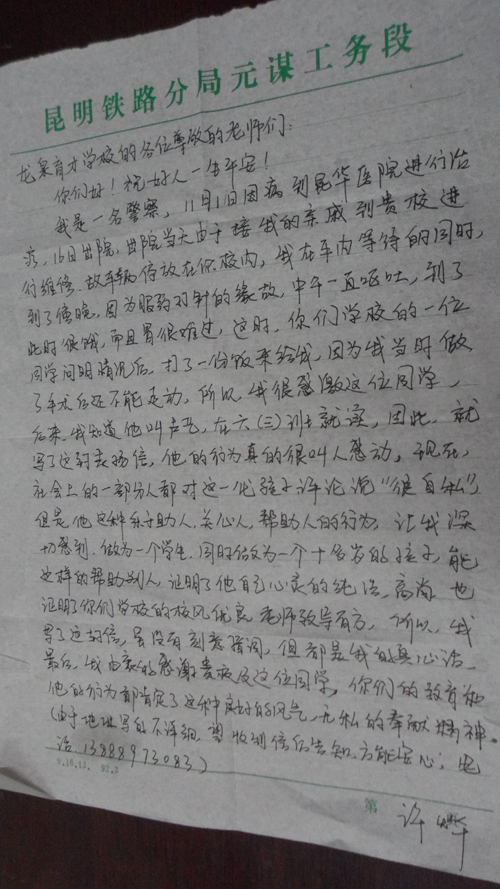 昆明铁路分局元谋工务段
龙泉育才学校的各位尊敬的老师们:
你们好!祝好人一生平安!
我是一名警察,11月1日因病到昆华医院进行治
疗,16日出院,出院当天由于接我的亲戚到贵校进
行维修,故车辆停放在你校内,我在车内等待的同时,
到了傍晚,因为服药对针的缘故,中午一直呕吐,到了
此时很饿,而且胃很难过,这时,你们学校的一位
同学问明情况后,打了一份饭来给我,因为我当时做
了手术后还不能走动,所以,我很感激这位同学,
后来,我知道他叫卢,在六(三)班就读,因此,就
写了这封表扬信,他的行为真的很叫人感动,现在,
社会上的一部分人都对这一代孩子评论说“很自私”,
但是他这种乐于助人,关心人,帮助人的行为,让我深
切感到,做为一个学生,同时做为一个十多岁的孩子,能
这样的帮助别人,证明了他自己心灵的纯洁、高尚,也
证明了你们学校的校风优良,老师教导有方,所以,我
写了这封信,虽没有刻意强调,但都是我的真心话,
最后,我由衷的感谢贵校及这位同学,你们的教育和
他的行为都肯定了这种良好的风气,无私的奉献精神。
(由于地址写的不详细,望收到信后告知,方能安心,电
话13888973083)
第
许晔